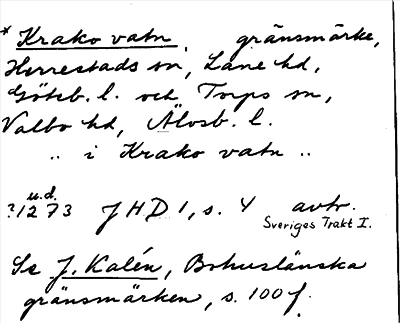 * Krako vatn, gränsmärke,
Herrestads sn, Lane hd,
Göteb. l. och Torps sn,
Valbo hd, Älvsb. l.
.. i Krako vatn ..
u.d.
?1273 JHD 1, s. 4 avtr.
Sveriges Trakt I.
Se J. Kalén, Bohuslänska
gränsmärken, s. 100 f.